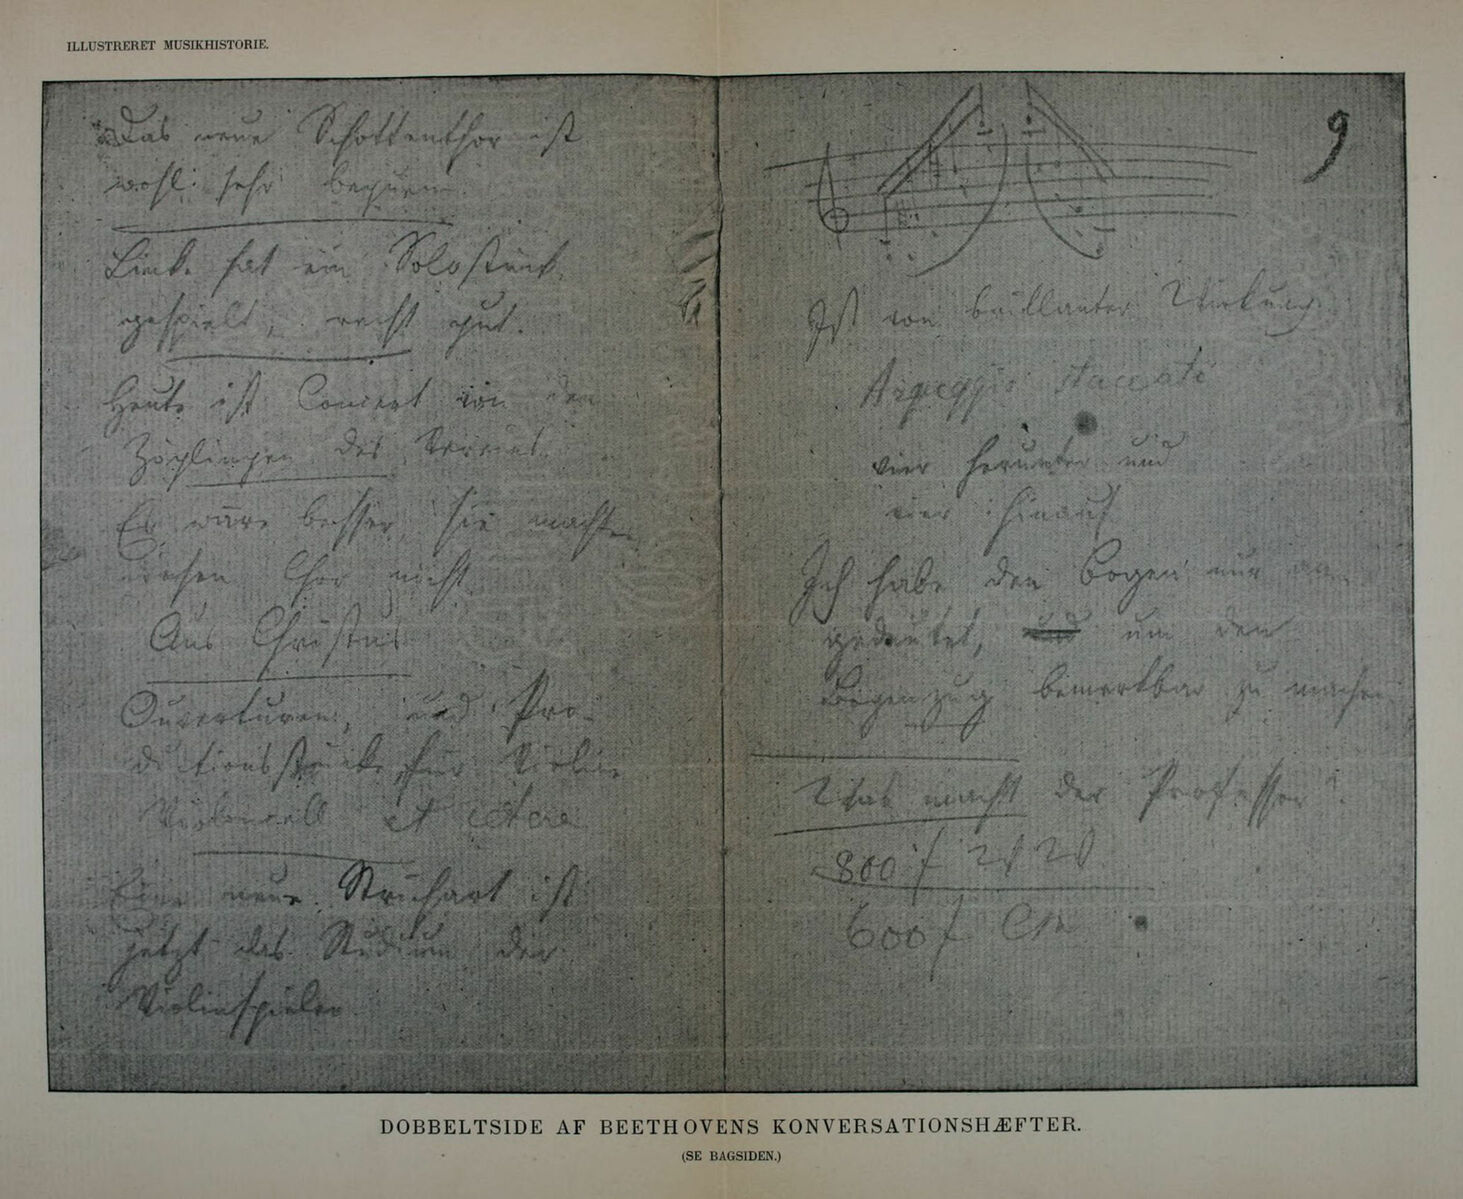 ILLUSTRERET MUSIKHISTORIE.
Das neue Schottenthor ist
wohl sehr bequem.
Linke hat ein Solostück
gespielt, recht gut.
Heute ist Concert von den
Zöglingen des Vereins.
Es wäre besser sie machten
diesen Chor nicht
Aus Christus
Ouverturen, und Pro-
ductionsstücke für Violin
Violoncell et cetera
Eine neue Strichart ist
jetzt das Studium der
Violinspieler
9
Ist von brillanter Wirkung
Arpeggio staccato
vier herunter und
vier hinauf
Ich habe den Bogen nur an-
gedeutet, und um den
Bogenzug bemerkbar zu machen
Was macht der Professor?
800 f W W
600 f CM
DOBBELTSIDE AF BEETHOVENS KONVERSATIONSHÆFTER.
(SE BAGSIDEN.)